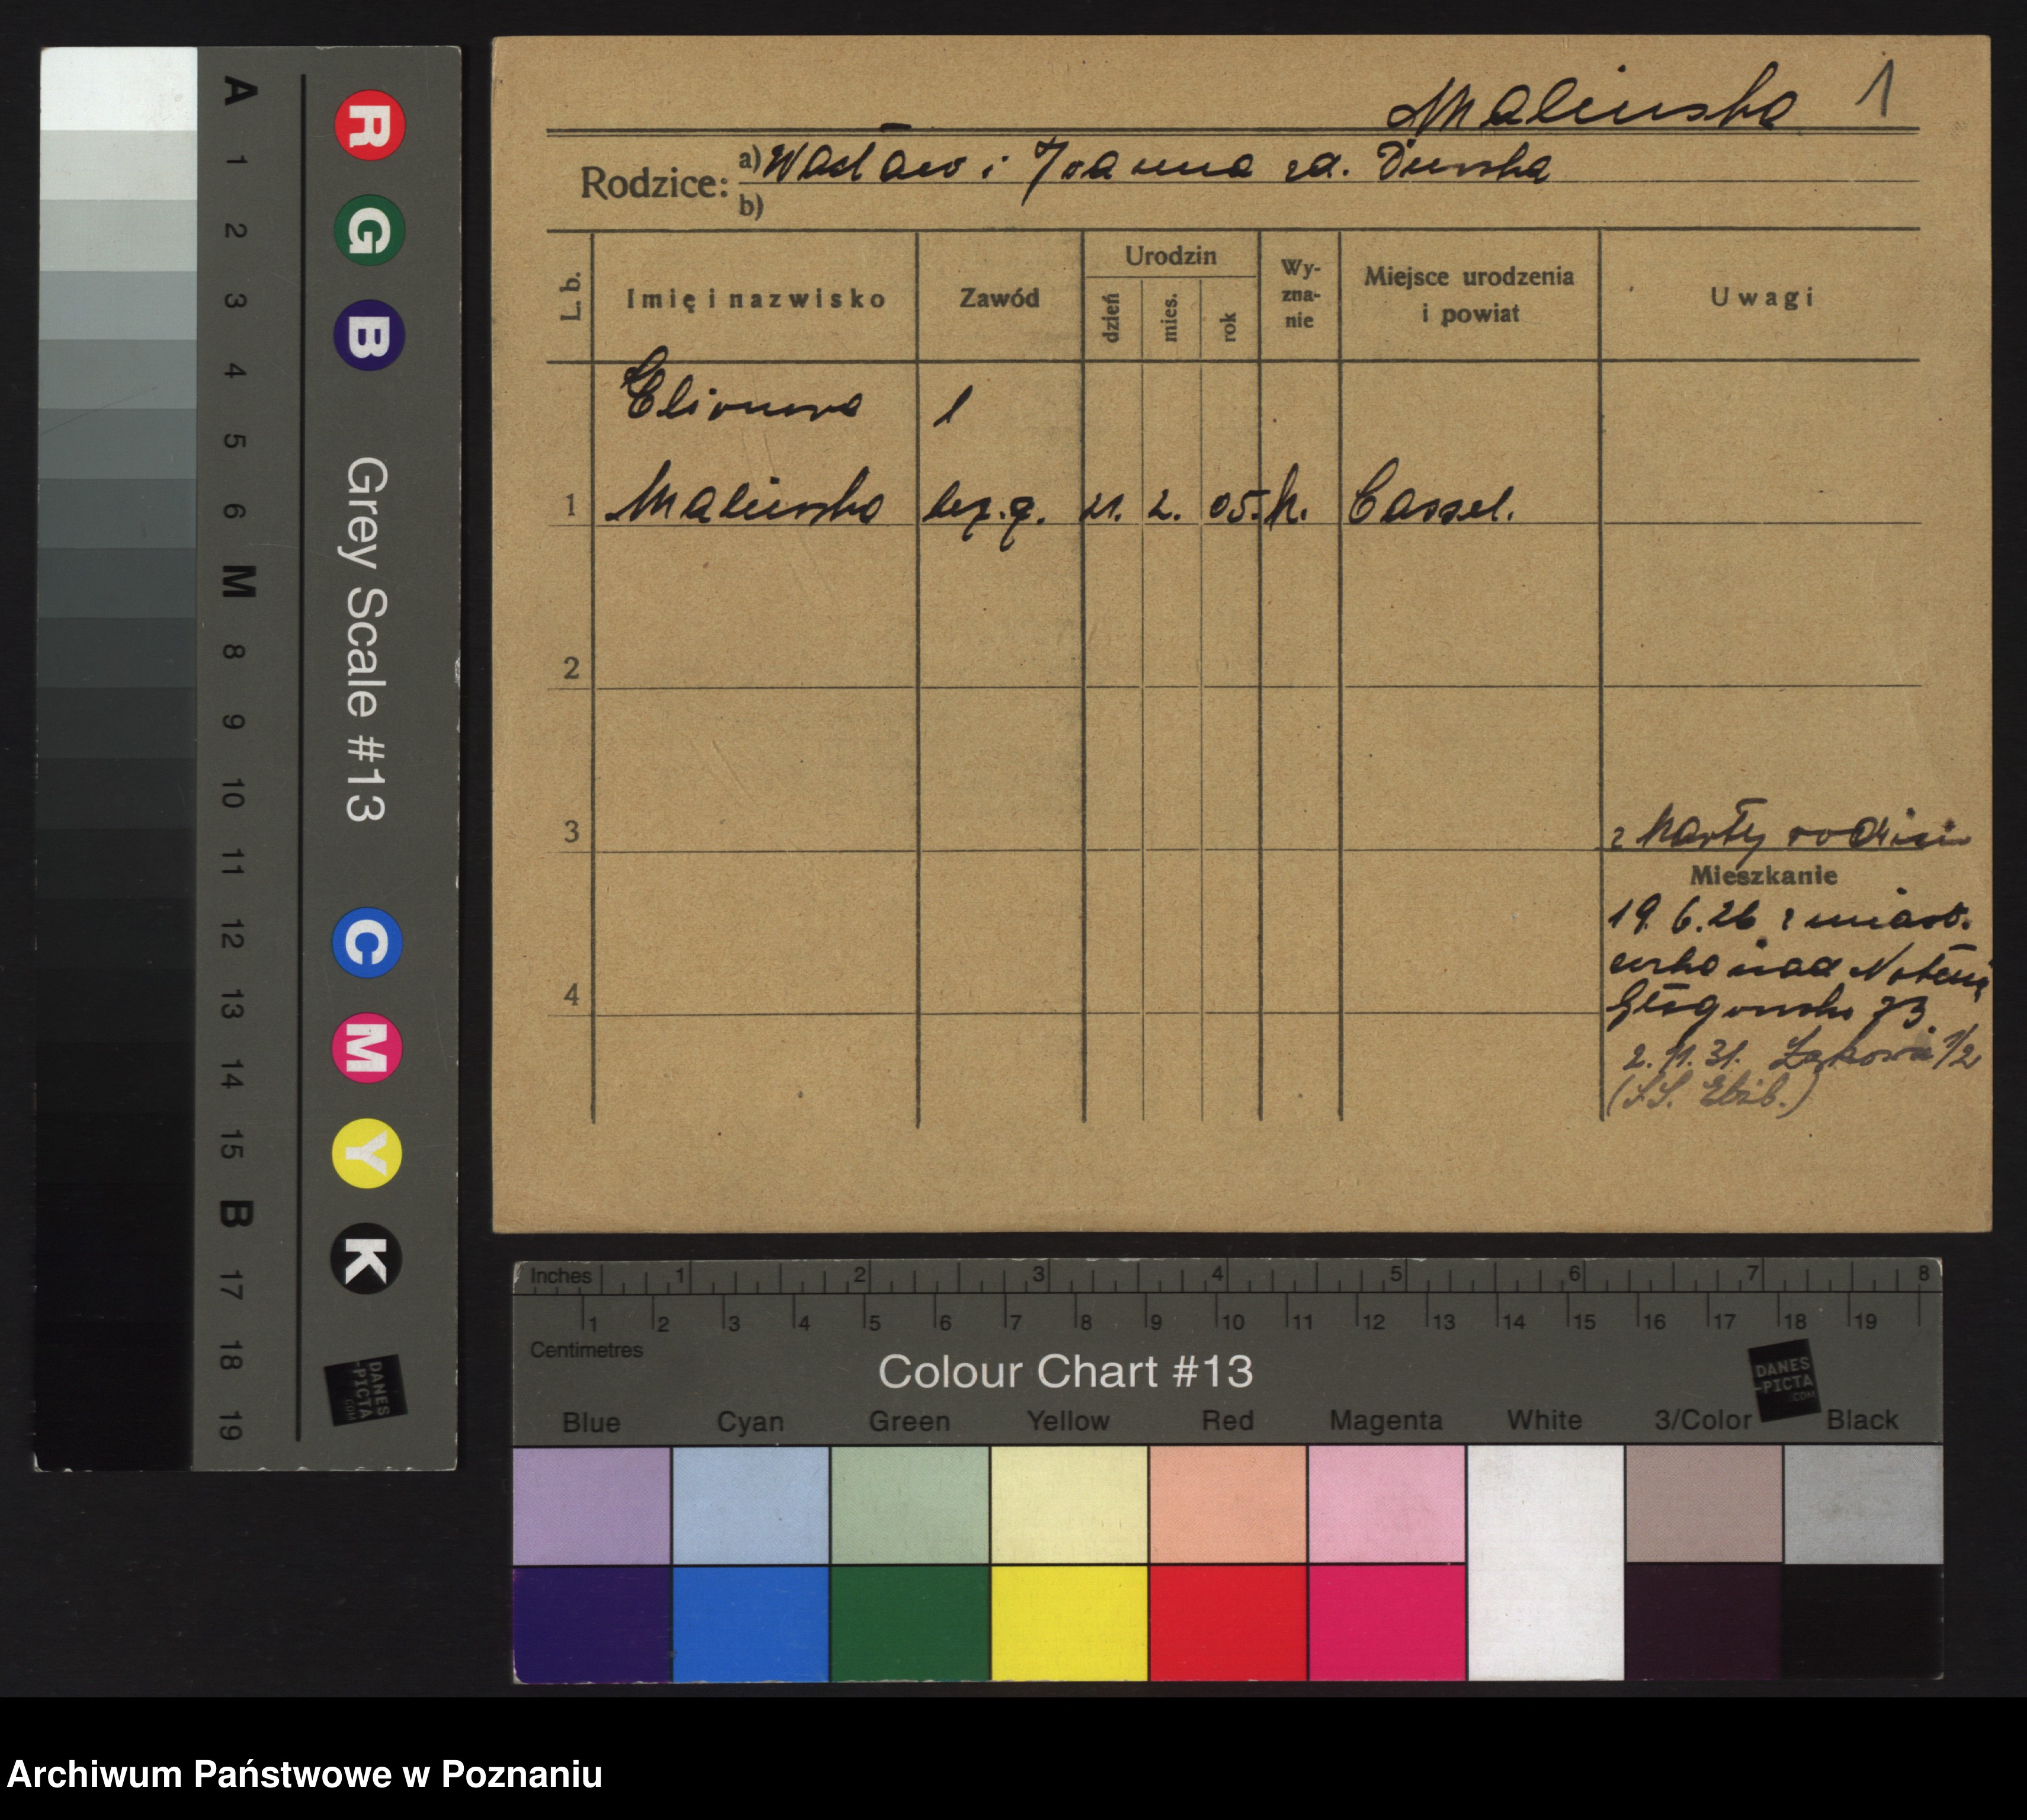 Malinska 1
Rodzice: a) Wacław i Joanna zd. Durska
b)
L. b. Imię i nazwisko Zawód Urodzin dzień mies. rok Wy-zna-nie Miejsce urodzenia i powiat Uwagi
1
Malinska bez. z. 21. 2. 05. k. Cassel.
2
3 z karty rodzin
Mieszkanie
19. 6. 26 z miast.
nad Notecią
4
73
2. 11. 31. Łąkowa 1/2
(S.S. Elżb.)
A 1 2 3 4 5 6 M 8 9 10 11 12 13 14 15 B 17 18 19
R G B Grey Scale #13 C M Y K
DANES
-PICTA
.COM
Inches 1 2 3 4 5 6 7 8
1 2 3 4 5 6 7 8 9 10 11 12 13 14 15 16 17 18 19
Centimetres
Colour Chart #13
DANES
-PICTA
.COM
Blue Cyan Green Yellow Red Magenta White 3/Color Black
Archiwum Państwowe w Poznaniu